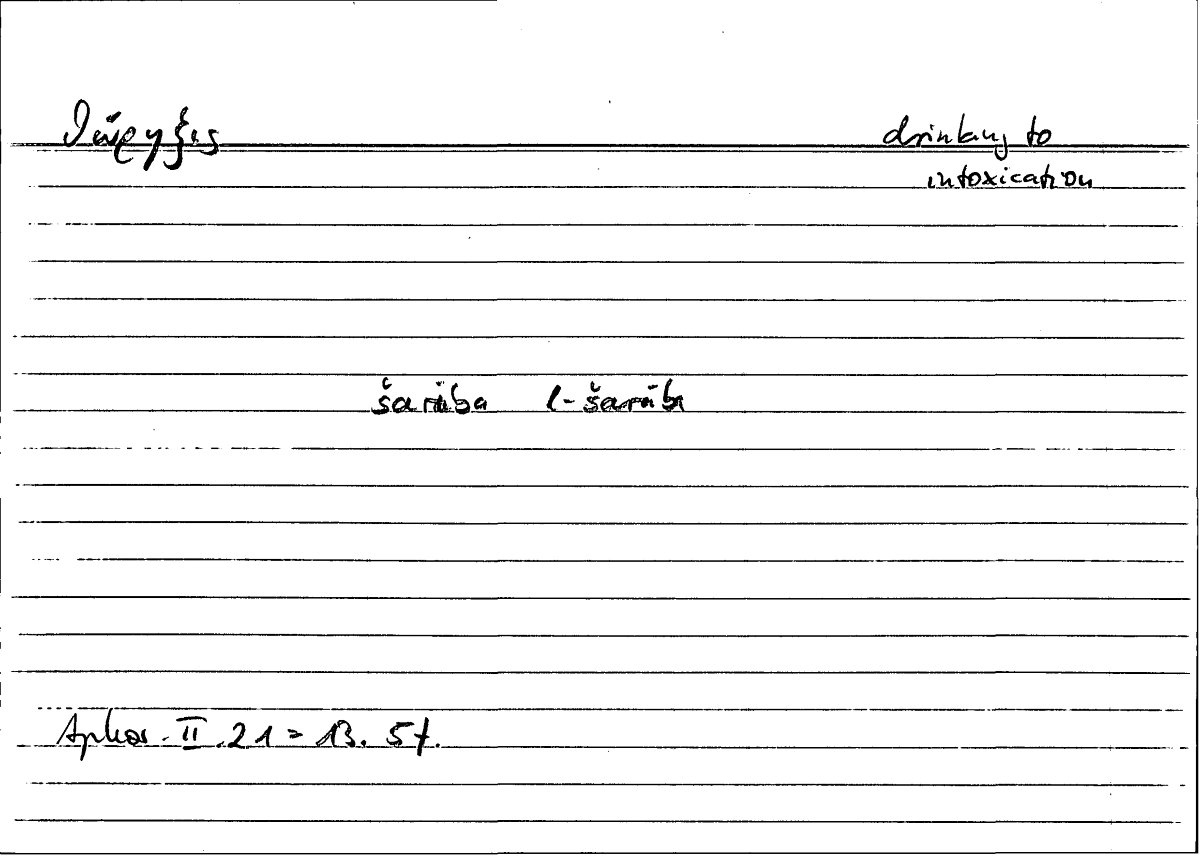 θώρηξις drinking to
intoxication
šarāba l-šarābi
Aphor. II.21 = 13. 5f.